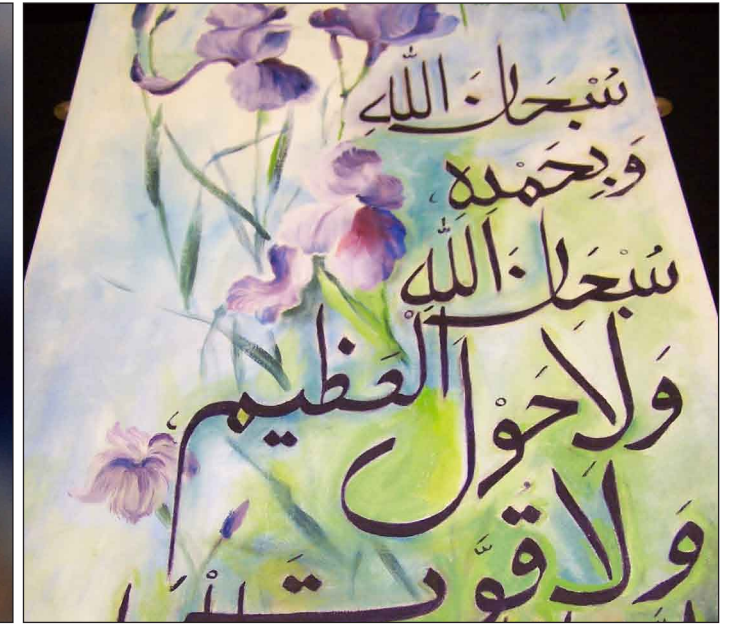 سُبْحَانَ اللّٰهِ
وَبِحَمْدِهِ
سُبْحَانَ اللّٰهِ
الْعَظِيمِ
وَلَا حَوْلَ
وَلَا قُوَّةَ